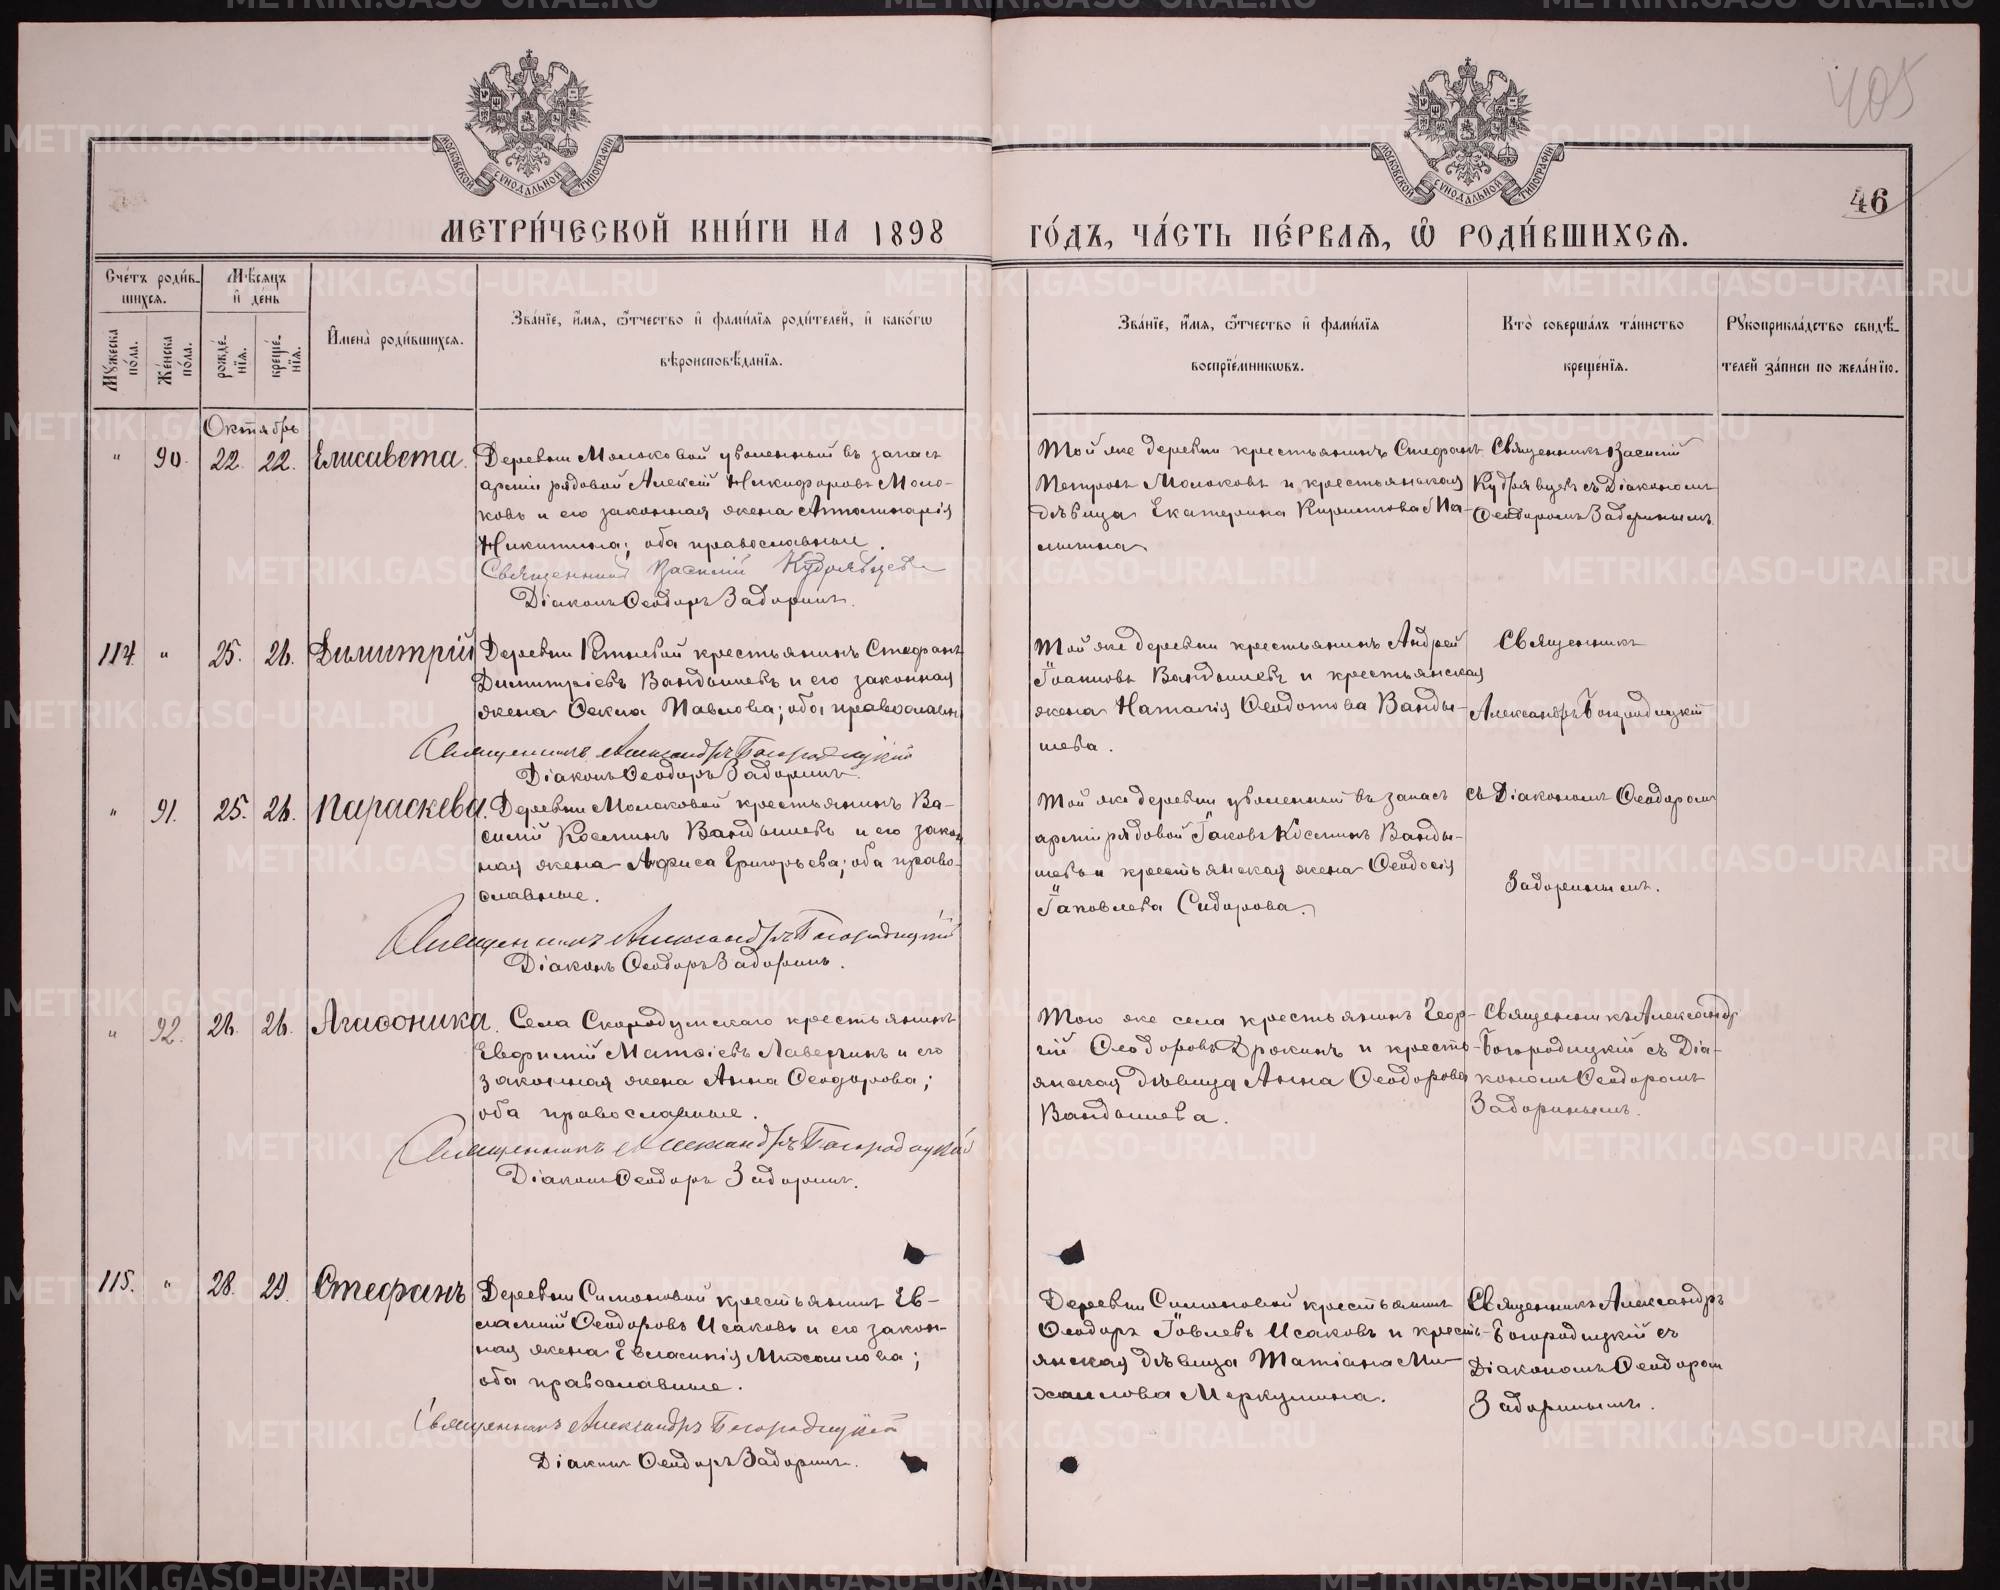 405
46
МОСКОВСКОЙ СѴНОДАЛЬНОЙ ТИПОГРАФІИ
МОСКОВСКОЙ СѴНОДАЛЬНОЙ ТИПОГРАФІИ
МЕТРИ́ЧЕСКОЙ КНИ́ГИ НА 1898
ГО́ДЪ, ЧА́СТЬ ПЕ́РВАЯ, Ѡ РОДИ́ВШИХСЯ.
Сче́тъ роди́вшихся.
Му́жеска по́ла.
Же́нска по́ла.
Мѣ́сяцъ и де́нь
рожде́нія.
креще́нія.
Имена̀ роди́вшихся.
Зва́ніе, и́мя, ѻ́тчество и фами́лія роди́телей, и како́гѡ
вѣроисповѣ́данія.
Зва́ніе, и́мя, ѻ́тчество и фами́лія
воспріе́мникѡвъ.
Кто̀ соверша́лъ та́инство
креще́нія.
Рукоприкла́дство свидѣ́-
телей за́писи по жела́нію.
Октябрь
" 90. 22. 22. Елисавета.
Деревни Молоковой уволенный въ запасъ
арміи рядовой Алексій Никифоровъ Моло-
ковъ и его законная жена Апполинарія
Никитина; оба православные.
Священникъ Василій Кудрявцевъ
Діаконъ Ѳеодоръ Задоринъ.
Той же деревни крестьянинъ Стефанъ
Петровъ Молоковъ и крестьянская
дѣвица Екатерина
Священникъ Василій
Кудрявцевъ съ Діакономъ
Ѳеодоромъ Задоринымъ.
114. " 25. 26. Димитрій
Деревни крестьянинъ Стефанъ
Димитріевъ Вандышевъ и его законная
жена Ѳекла Павлова; оба православн
Священникъ Александръ Богородицкій
Діаконъ Ѳеодоръ Задоринъ.
Той же деревни крестьянинъ Андрей
Іоанновъ Вандышевъ и крестьянская
жена Наталія Ѳеодотова Ванды-
шева.
Священникъ
Александръ Богородицкій
" 91. 25. 26. Параскева.
Деревни Молоковой крестьянинъ Ва-
силій Косминъ Вандышевъ и его закон
ная жена Африса Григорьева; оба право-
славные.
Священникъ Александръ Богородицкій
Діаконъ Ѳеодоръ Задоринъ.
Той же деревни уволенный въ запасъ
арміи рядовой Іаковъ Косминъ Ванды-
шевъ и крестьянская жена Ѳеодосія
Іаковлева Сидорова.
съ Діакономъ Ѳеодоромъ
Задоринымъ.
" 92. 26. 26. Агаѳоника.
Села Скородумскаго крестьянинъ
Евфимій Матѳіевъ Лавелинъ и его
законная жена Анна Ѳеодорова;
оба православные.
Священникъ Александръ Богородицкій
Діаконъ Ѳеодоръ Задоринъ.
Того же села крестьянинъ Геор-
гій Ѳеодоровъ и кресть-
янская дѣвица Анна Ѳеодорова
Вандышева.
Священникъ Александръ
Богородицкій съ Діа-
кономъ Ѳеодоромъ
Задоринымъ.
115. " 28. 29. Стефанъ
Деревни Симоновой крестьянинъ Ев-
лампій Ѳеодоровъ Исаковъ и его закон-
ная жена Евлампія Михаилова;
оба православные.
Священникъ Александръ Богородицкій
Діаконъ Ѳеодоръ Задоринъ.
Деревни Симоновой крестьянинъ
Ѳеодоръ Іовлевъ Исаковъ и кресть-
янская дѣвица Татіана Ми-
хаилова Меркушина.
Священникъ Александръ
Богородицкій съ
Діакономъ Ѳеодором
Задоринымъ.
METRIKI.GASO-URAL.RU